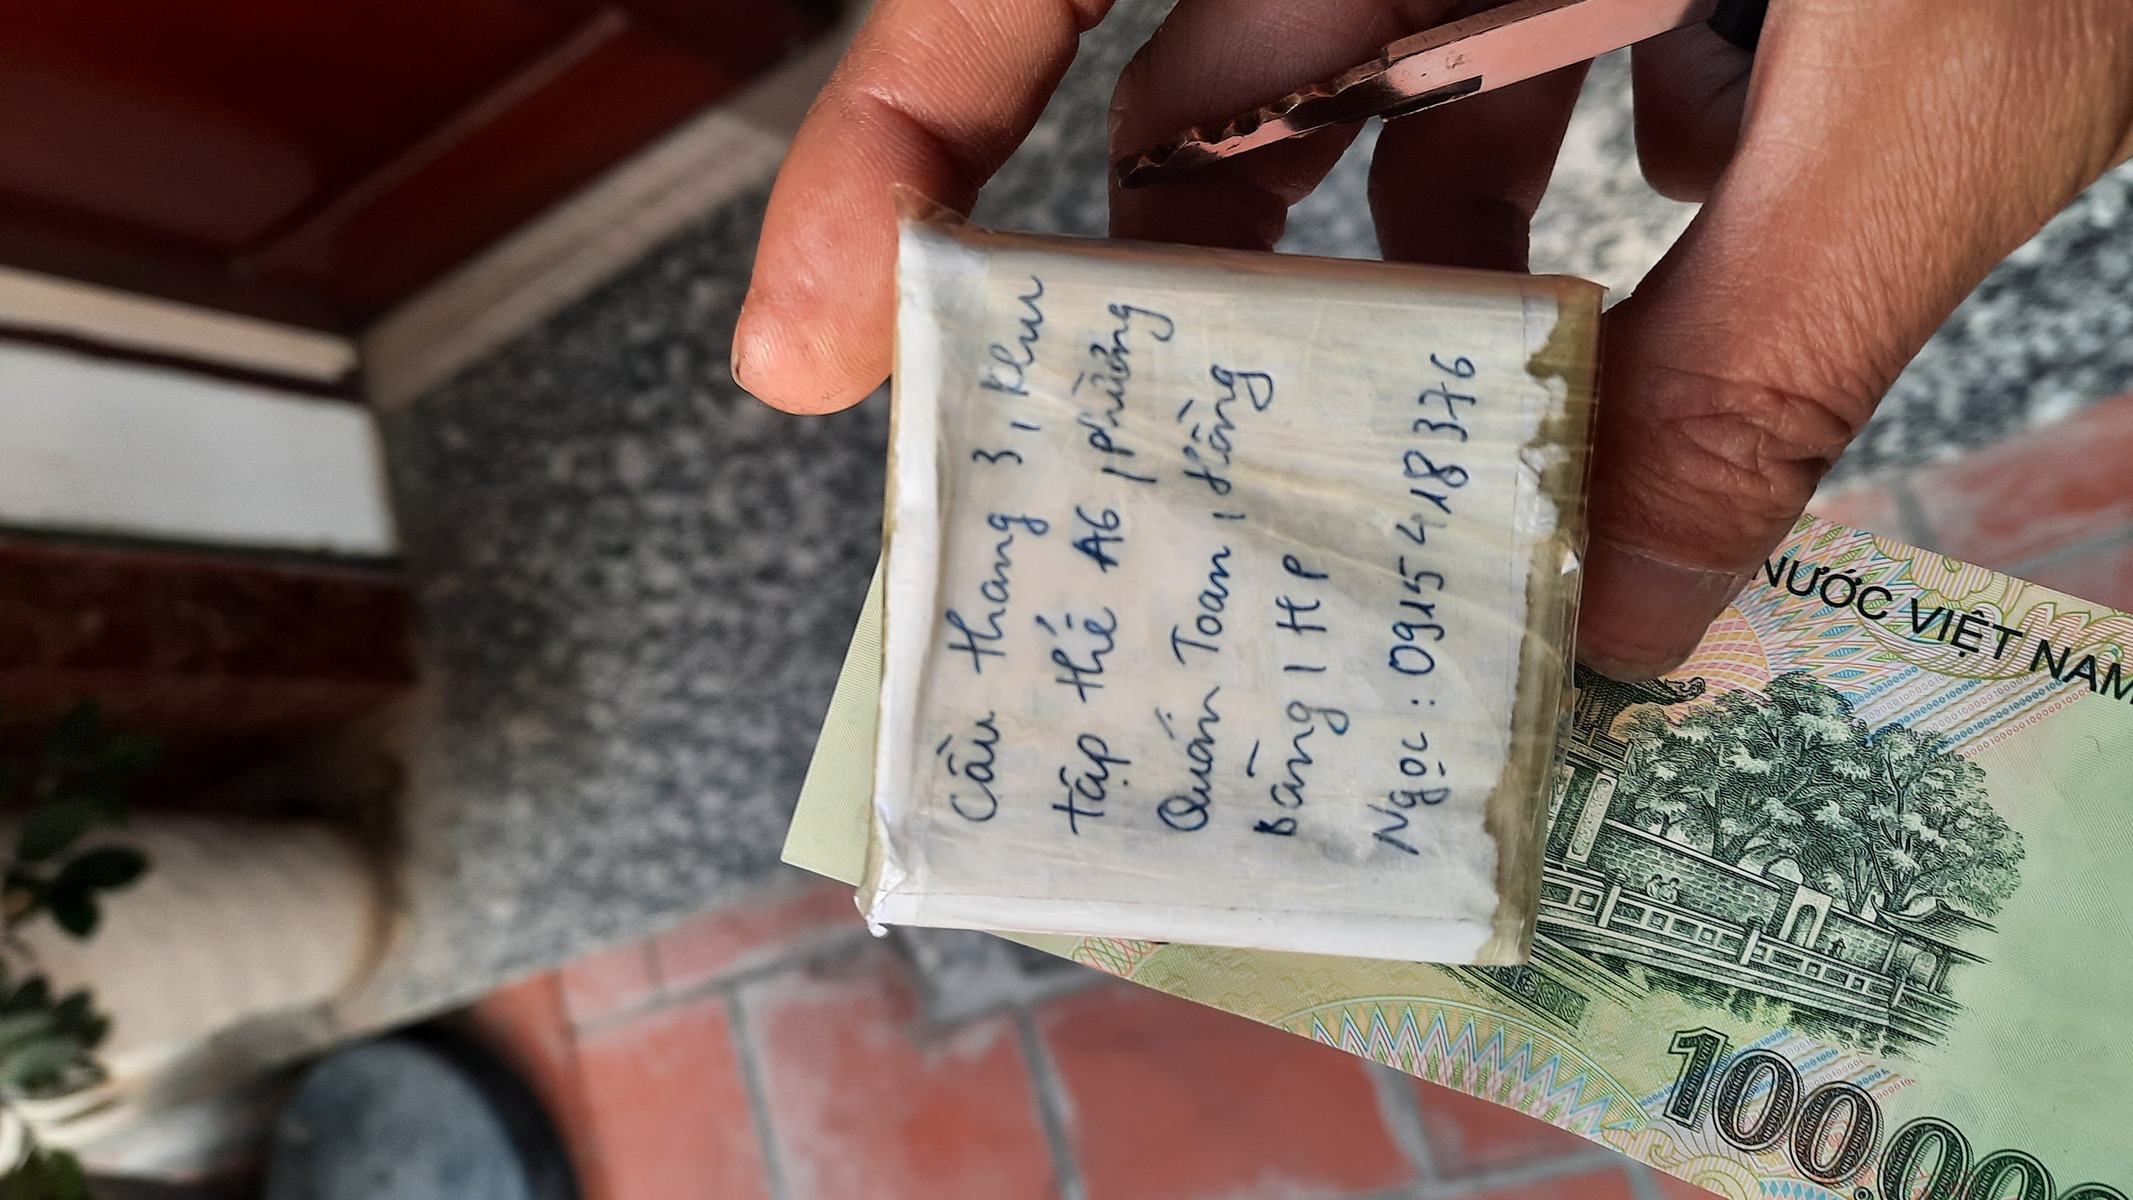 Cầu thang 3, Khu
tập thể A6, Phường
Quán Toan, Hồng
Bàng, HP
Ngọc: 0915 418 376
NƯỚC VIỆT NAM